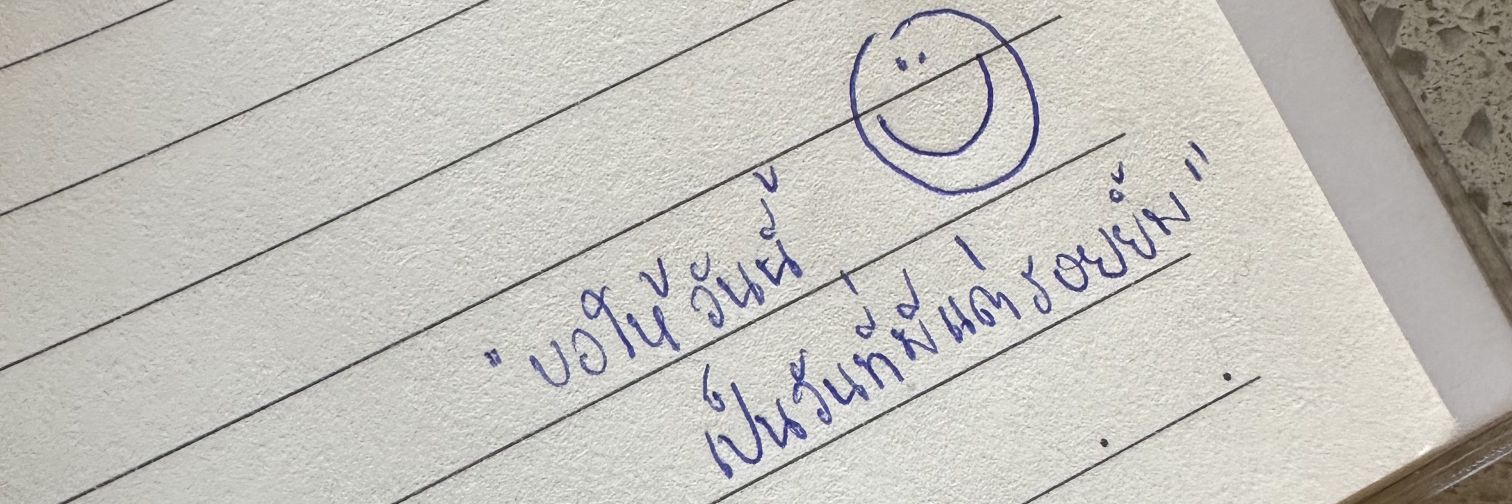 "ขอให้วันนี้
เป็นวันที่มีแต่รอยยิ้ม"